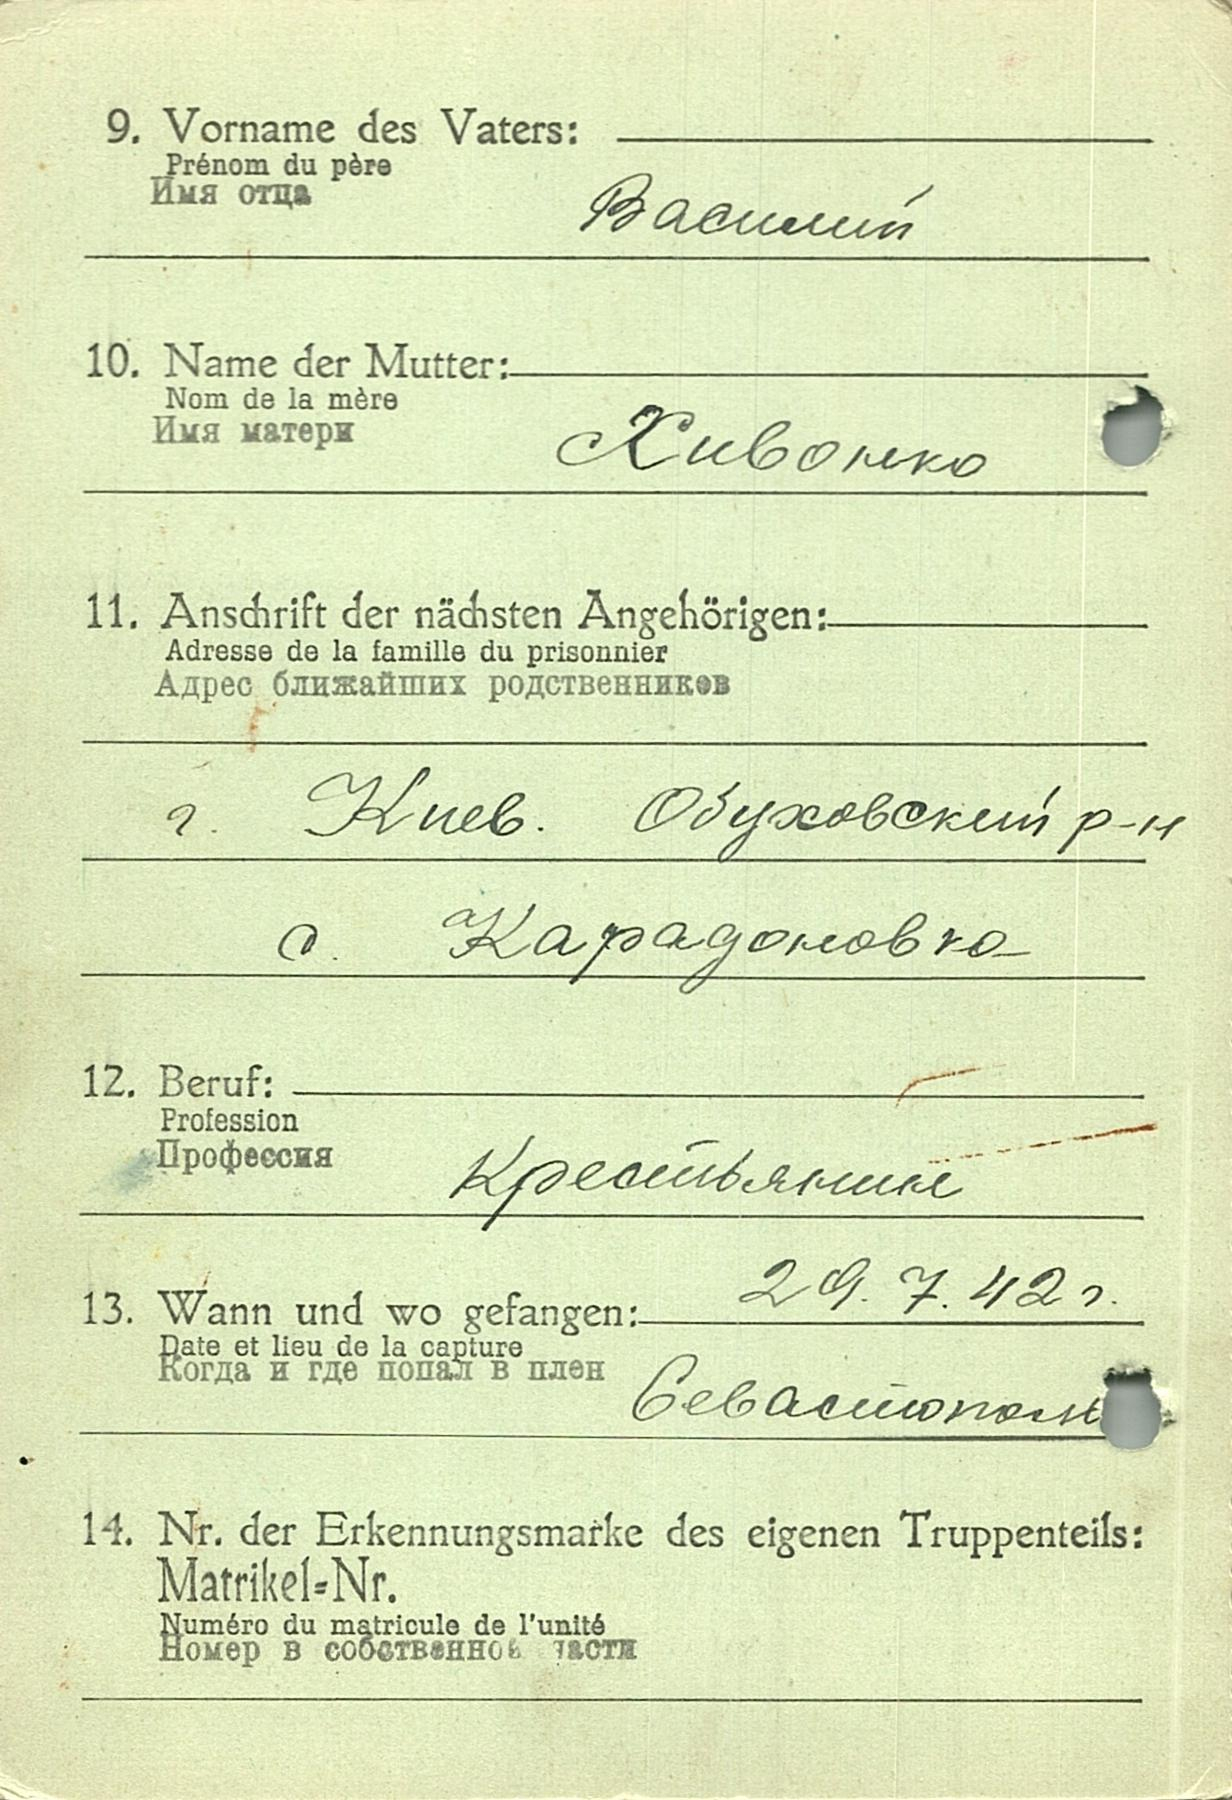 9. Vorname des Vaters:
Prénom du père
Имя отца
Василий
10. Name der Mutter:
Nom de la mère
Имя матери
Хивонко
11. Anschrift der nächsten Angehörigen:
Adresse de la famille du prisonnier
Адрес ближайших родственников
г. Киев. Обуховский р-н
с. Карадоновка
12. Beruf:
Profession
Профессия
Крестьянин
29.7.42 г.
13. Wann und wo gefangen:
Date et lieu de la capture
Когда и где попал в плен
Севастополь
14. Nr. der Erkennungsmarke des eigenen Truppenteils:
Matrikel=Nr.
Numéro du matricule de l'unité
Номер в собственной части